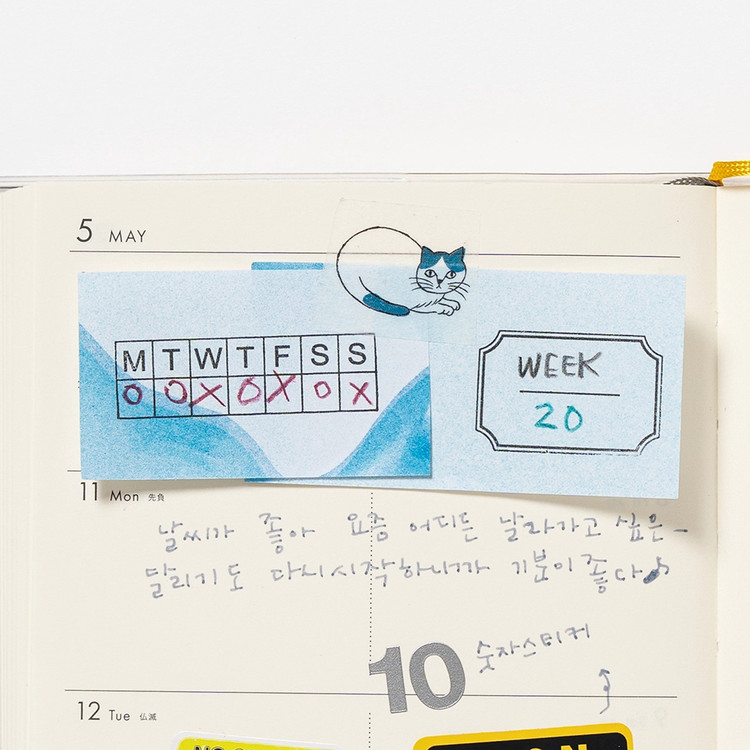 5 MAY
M T W T F S S
O O X O X O X
WEEK
20
11 Mon 先負
날씨가 좋아 요즘 어디든 날라가고 싶은~
달리기도 다시시작하니까 기분이좋다♪
10 숫자스티커
12 Tue 仏滅